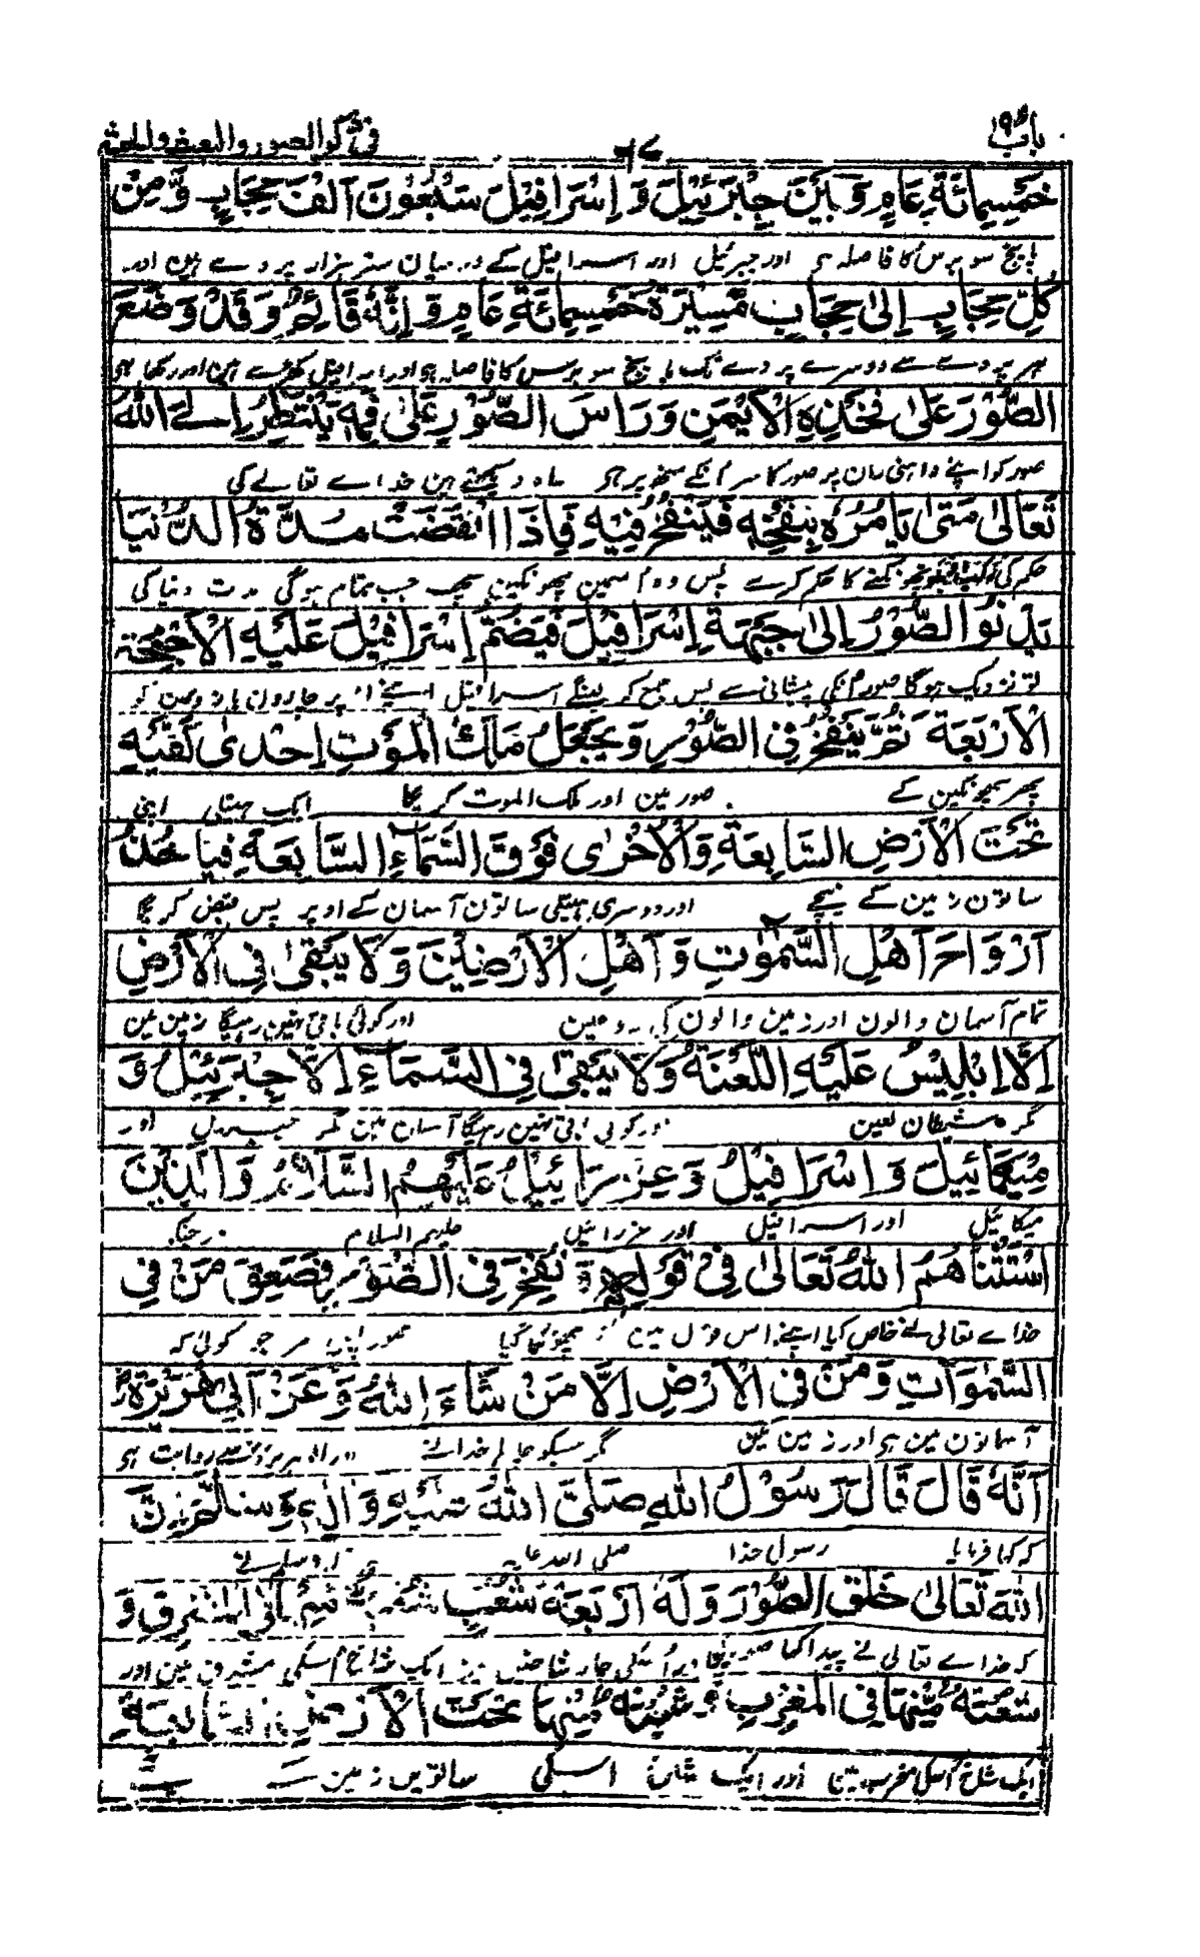 باب ۱۹
فی ذکر الصور والبعث والحشر
خَمْسِمِائَةِ عَامٍ وَبَيْنَ جِبْرَئِيْلَ وَاِسْرَافِيْلَ سَبْعُوْنَ اَلْفَ حِجَابٍ وَّمِنْ
پانچ سو برس کا فاصلہ ہی اور جبرئیل اور اسرافیل کے درمیان ستر ہزار پردے ہین اور
كُلِّ حِجَابٍ اِلىٰ حِجَابٍ مَسِيْرَةُ خَمْسِمِائَةِ عَامٍ وَّاِنَّهُ قَائِمٌ وَقَدْ وَضَعَ
ہر پردے سے دوسرے پردے تک پانچ سو برس کا فاصلہ ہی اور اسرافیل کھڑے ہین اور رکھا ہی
الصُّوْرَ عَلىٰ فَخِذِهِ الْاَيْمَنِ وَرَاسَ الصُّوْرِ عَلىٰ فَمِهٖ يَنْتَظِرُ اِلٰى اللّٰهِ
صور کو اپنے داہنی ران پر صور کا سر انکے منھ پر ہی دیکھتے ہین خداے تعالے کی
تَعَالىٰ مَتىٰ يَامُرُهُ بِنَفْخِهٖ فَيَنْفُخُ فِيْهِ فَاِذَا انْقَضَتْ مُدَّةُ الدُّنْيَا
حکم کی کہ کب پھونکنے کا حکم کرے پس وہ اسمین پھونکین جب تمام ہوگی مدت دنیا کی
يَدْنُوْ الصُّوْرُ اِلىٰ جَبْهَةِ اِسْرَافِيْلَ فَيَضُمُّ اِسْرَافِيْلَ عَلَيْهِ الْاَجْنِحَةَ
تو نزدیک ہوگا صور انکی پیشانی سے پس جمع کرینگے اسرافیل اپنے پر چارون بازوین کو
الْاَرْبَعَةَ ثُمَّ يَنْفُخُ فِي الصُّوْرِ وَيَجْعَلُ مَلَكُ الْمَوْتِ اِحْدىٰ كَفَّيْهِ
پھر پھونکین کے صور مین اور ملک الموت کریگا ایک ہتیلی اپنی
تَحْتَ الْاَرْضِ السَّابِعَةِ وَالْاُخْرٰى فَوْقَ السَّمَآءِ السَّابِعَةِ فَيَاخُذُ
ساتون زمین کے نیچے اور دوسری ہتیلی ساتون آسمان کے اوپر پس قبض کریگا
اَرْوَاحَ اَهْلِ السَّمٰوٰتِ وَاَهْلِ الْاَرْضِيْنَ وَلَا يَبْقىٰ فِى الْاَرْضِ
تمام آسمان والون اور زمین والون کی روحین اور کوئی باقی نہین رہیگا زمین مین
اِلَّا اِبْلِيْسُ عَلَيْهِ اللَّعْنَةُ وَلَا يَبْقىٰ فِى السَّمَآءِ اِلَّا جِبْرَئِيْلُ وَ
مگر شیطان لعین اور کوئی باقی نہین رہیگا آسمان مین مگر جبرئیل اور
مِيْكَائِيْلَ وَاِسْرَافِيْلُ وَعِزْرَائِيْلُ عَلَيْهِمُ السَّلَامُ وَالَّذِيْنَ
میکائیل اور اسرافیل اور عزرائیل علیہم السلام اور جنکو
اسْتَثْنَاهُمُ اللّٰهُ تَعَالىٰ فِيْ قَوْلِهٖ وَنُفِخَ فِى الصُّوْرِ فَصَعِقَ مَنْ فِى
خداے تعالی نے خاص کیا اپنے اس قول مین پھونکا گیا صور پس مر جو کوئی کہ
السَّمٰوَاتِ وَمَنْ فِى الْاَرْضِ اِلَّا مَنْ شَاءَ اللّٰهُ وَعَنْ اَبِيْ هُرَيْرَةَ
آسمانون مین ہی اور زمین مین مگر جسکو چاہا خدا نے اور ابو ہریرہ سے روایت ہی
اَنَّهٗ قَالَ قَالَ رَسُوْلُ اللّٰهِ صَلَّى اللّٰهُ عَلَيْهِ وَاٰلِهٖ وَسَلَّمَ اِنَّ
کہ کہا فرمایا رسول خدا صلی اللہ علیہ وسلم نے
اللّٰهَ تَعَالىٰ خَلَقَ الصُّوْرَ وَلَهٗ اَرْبَعَةُ شُعَبٍ شُعْبَةٌ مِنْهَا فِى الْمَشْرِقِ وَ
کہ خداے تعالی نے پیدا کیا صور اور اسکی چار شاخین ہین ایک شاخ اسکی مشرق مین اور
شُعْبَةٌ مِّنْهَا فِى الْمَغْرِبِ وَشُعْبَةٌ مِّنْهَا تَحْتَ الْاَرْضِ السَّابِعَةِ
ایک شاخ اسکی مغرب مین اور ایک شاخ اسکی ساتوین زمین کے نیچے